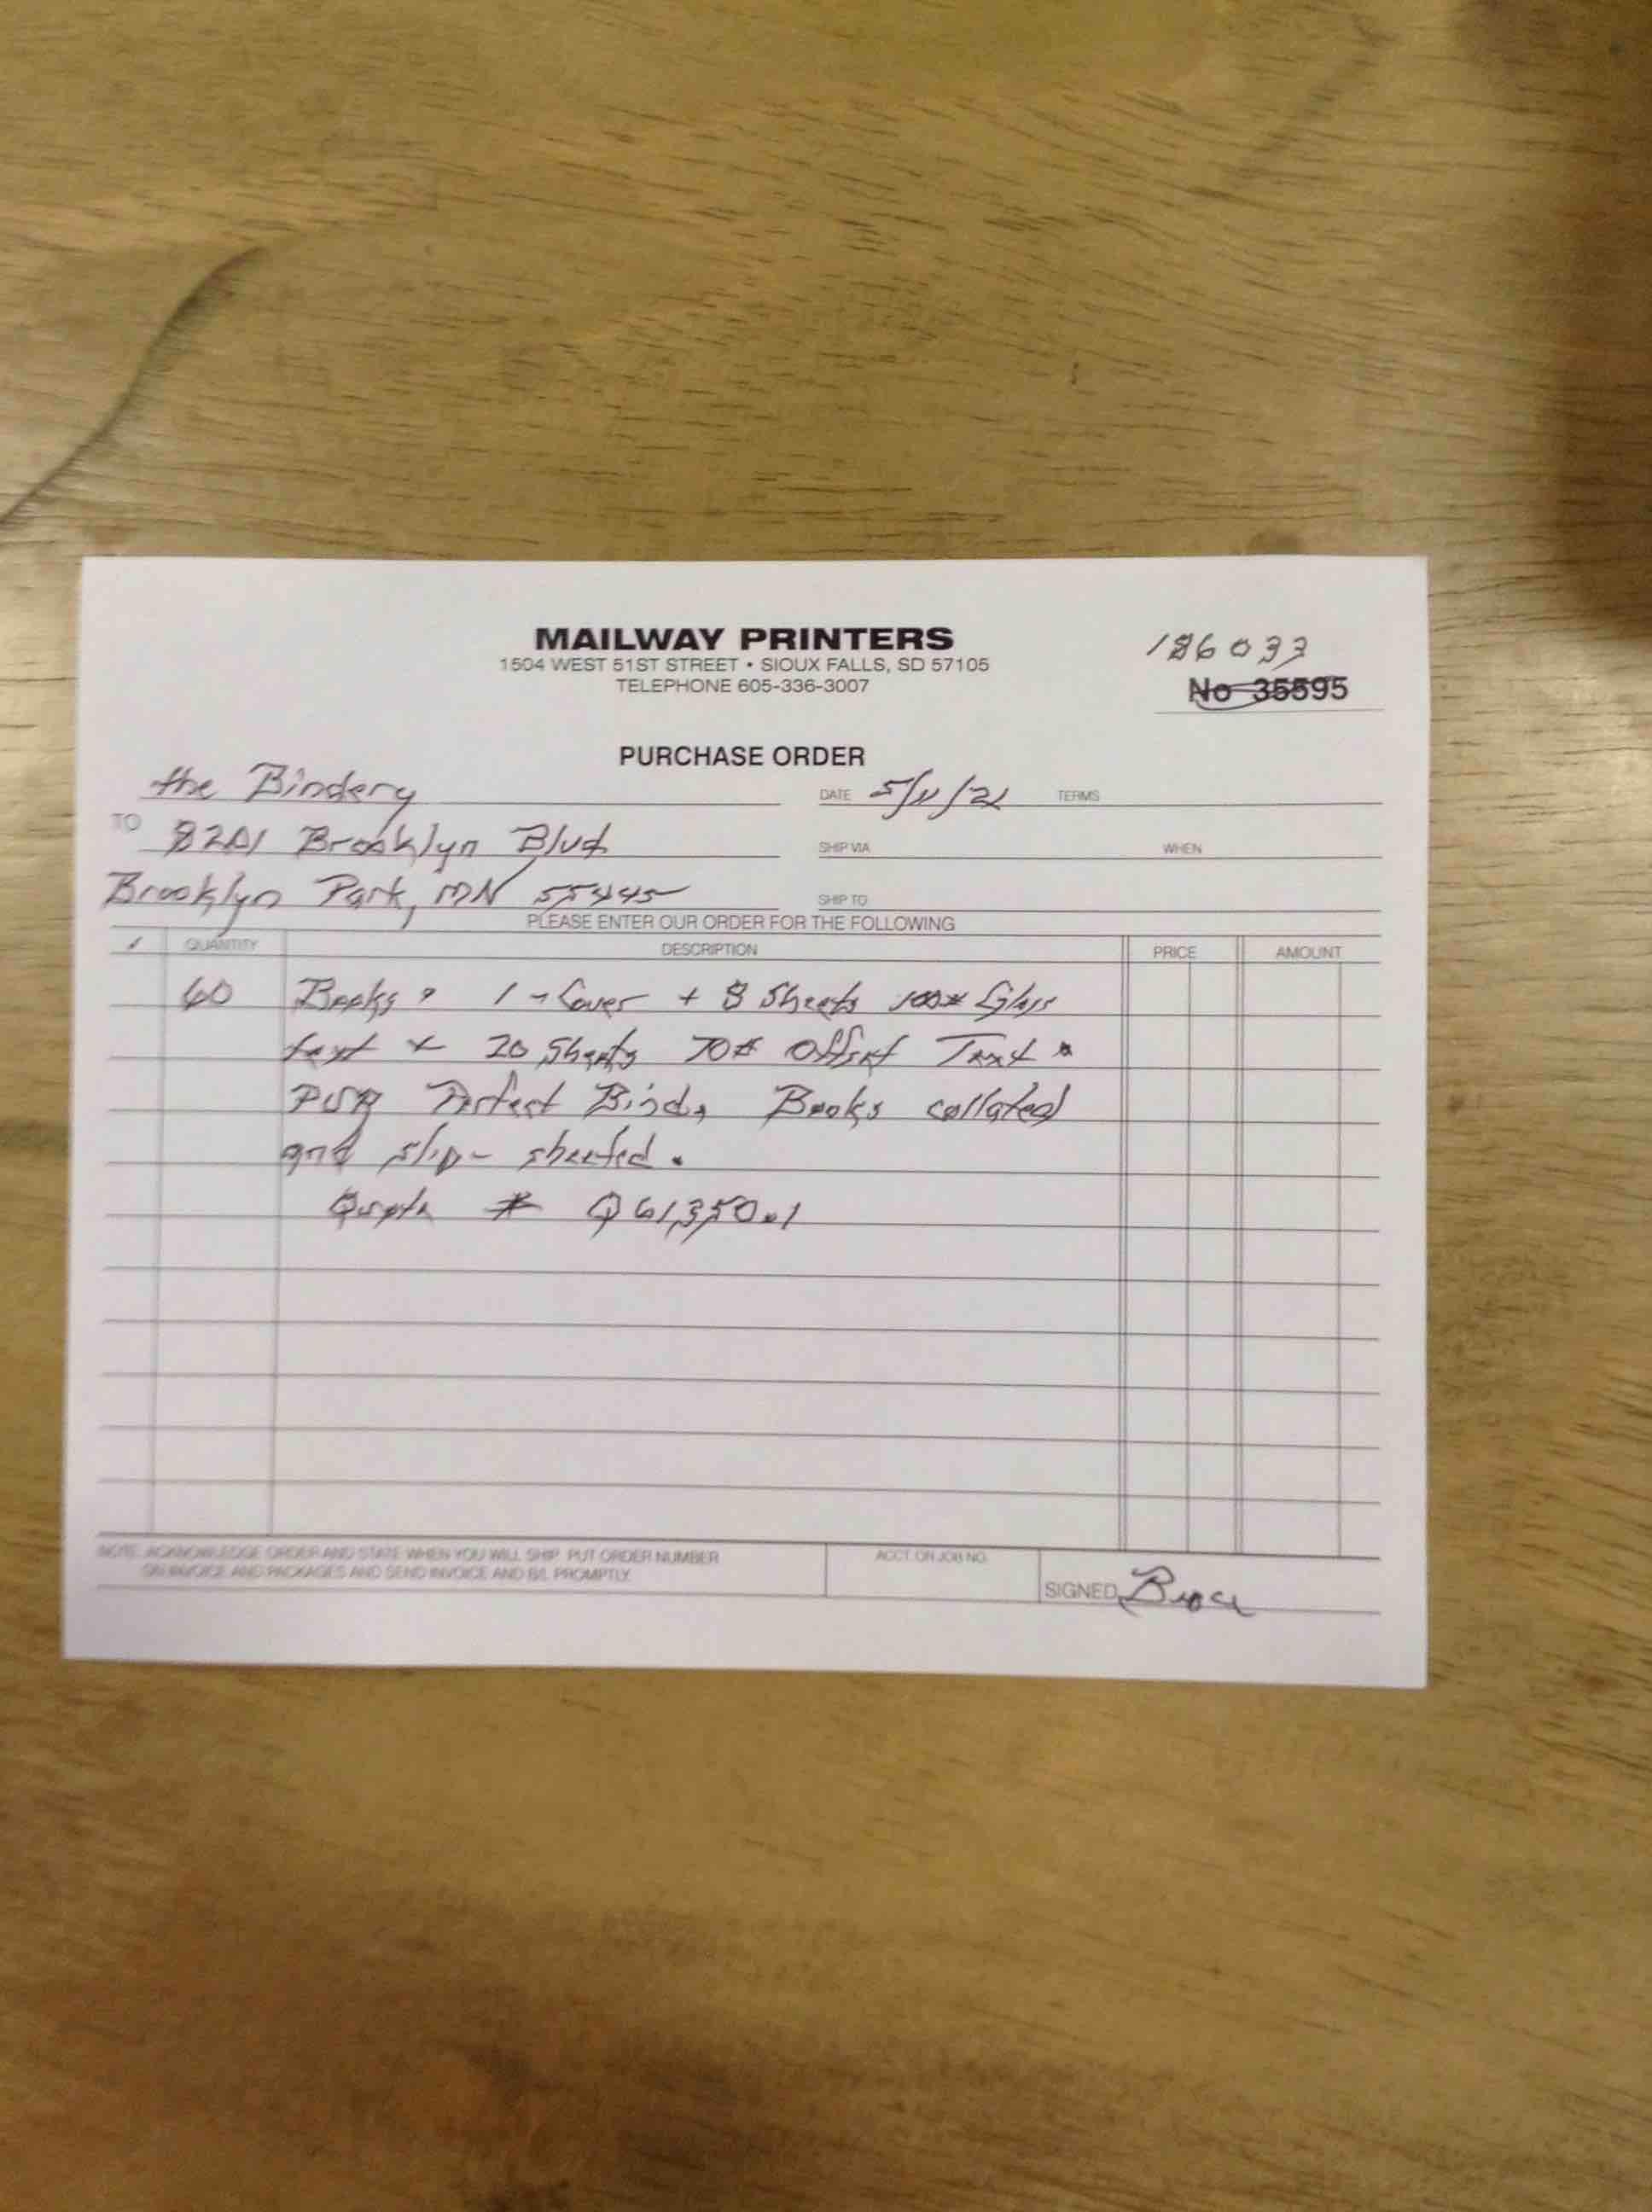 MAILWAY PRINTERS
1504 WEST 51ST STREET • SIOUX FALLS, SD 57105
TELEPHONE 605-336-3007
186033
No 35595
PURCHASE ORDER
the Bindery
DATE 5/11/21 TERMS
TO 8201 Brooklyn Blvd
SHIP VIA WHEN
Brooklyn Park, MN 55445
SHIP TO
PLEASE ENTER OUR ORDER FOR THE FOLLOWING
✓ QUANTITY DESCRIPTION PRICE AMOUNT
60 Books, 1 - Cover + 8 Sheets 100# Gloss
text + 20 Sheets 70# Offset Text.
PUR Perfect Bind, Books collated
and slip-sheeted.
Quote # Q61350.1
NOTE: ACKNOWLEDGE ORDER AND STATE WHEN YOU WILL SHIP. PUT ORDER NUMBER
ON INVOICE AND PACKAGES AND SEND INVOICE AND B/L PROMPTLY.
ACCT. OR JOB NO.
SIGNED Bruce